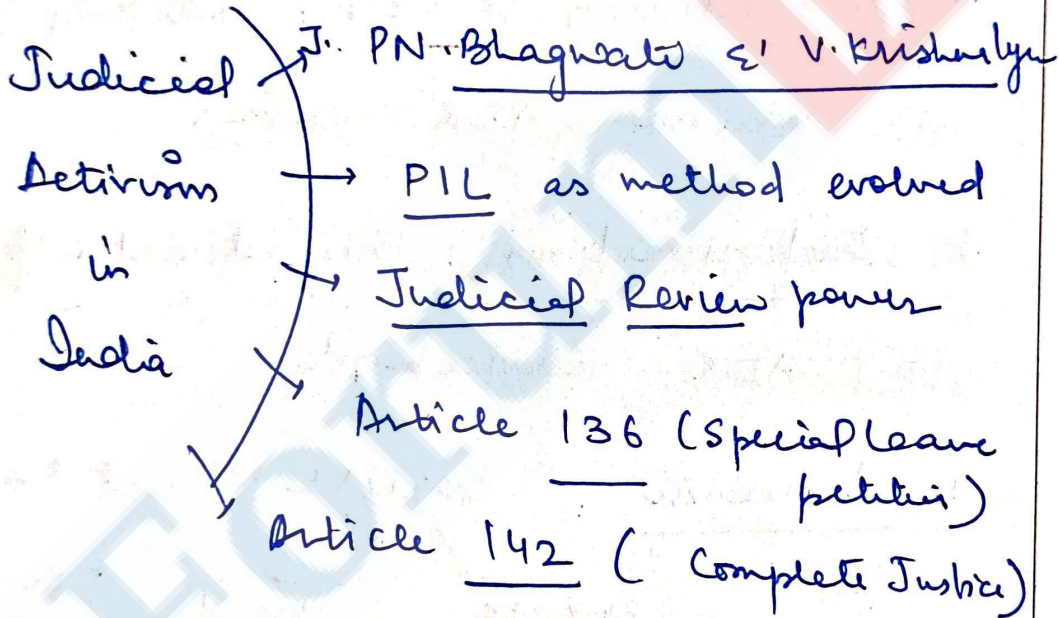 Judicial
Activism
in
India
J. PN. Bhagwati & V. Krishna Iyer
PIL as method evolved
Judicial Review power
Article 136 (Special Leave
petition)
Article 142 (Complete Justice)
Forum